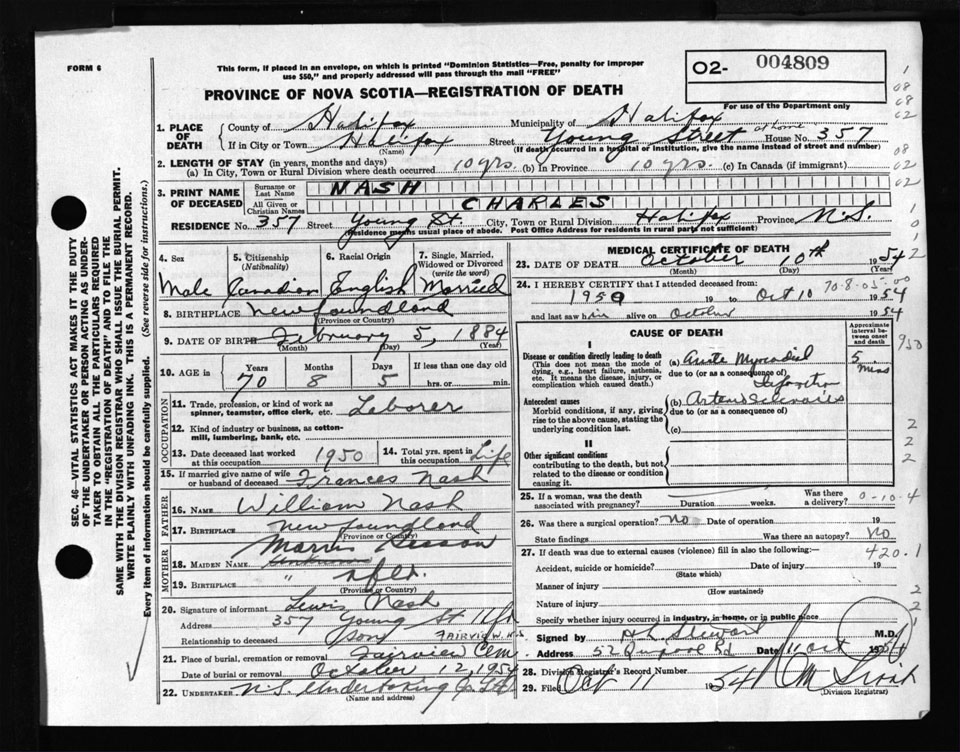 FORM 6
This form, if placed in an envelope, on which is printed "Dominion Statistics—Free, penalty for improper
use $50," and properly addressed will pass through the mail "FREE"
PROVINCE OF NOVA SCOTIA—REGISTRATION OF DEATH
O2- 004809
For use of the Department only
1. PLACE OF DEATH
County of Halifax Municipality of Halifax
If in City or Town Halifax (Name) Street Young Street at home House No. 357
(If death occurred in a hospital or institution, give the name instead of street and number)
2. LENGTH OF STAY (in years, months and days)
(a) In City, Town or Rural Division where death occurred 10 yrs. (b) In Province 10 yrs. (c) In Canada (if immigrant)
3. PRINT NAME OF DECEASED
Surname or Last Name NASH
All Given or Christian Names CHARLES
RESIDENCE No. 357 Street Young St. City, Town or Rural Division Halifax Province N.S.
(Residence means usual place of abode. Post Office Address for residents in rural parts not sufficient)
4. Sex Male
5. Citizenship (Nationality) Canadian
6. Racial Origin English
7. Single, Married, Widowed or Divorced (write the word) Married
8. BIRTHPLACE Newfoundland
(Province or Country)
9. DATE OF BIRTH February 5, 1884
(Month) (Day) (Year)
10. AGE in Years 70 Months 8 Days 5 If less than one day old
hrs. or min.
OCCUPATION
11. Trade, profession, or kind of work as
spinner, teamster, office clerk, etc. Laborer
12. Kind of industry or business, as cotton-
mill, lumbering, bank, etc.
13. Date deceased last worked
at this occupation 1950
14. Total yrs. spent in
this occupation Life
15. If married give name of wife
or husband of deceased Frances Nash
FATHER
16. Name William Nash
17. Birthplace Newfoundland
MOTHER
18. MAIDEN NAME
19. BIRTHPLACE " Nfld.
(Province or Country)
20. Signature of informant Lewis Nash
Address 357 Young St Hfx
Relationship to deceased son
FAIRVIEW, N.S.
21. Place of burial, cremation or removal Fairview Cem.
Date of burial or removal October 12, 1954
22. UNDERTAKER N.S. Undertaking Co. Ltd.
MEDICAL CERTIFICATE OF DEATH
23. DATE OF DEATH October 10th 1954
(Month) (Day) (Year)
24. I HEREBY CERTIFY that I attended deceased from:
19 to Oct 10 1954
70-8-05-00
and last saw him alive on October 1954
CAUSE OF DEATH
Approximate interval between onset and death
I
Disease or condition directly leading to death
(This does not mean the mode of dying, e.g., heart failure, asthenia, etc. It means the disease, injury, or complication which caused death.)
(a) Acute Myocardial
due to (or as a consequence of)
Infarction
5 Mins
Antecedent causes
Morbid conditions, if any, giving rise to the above cause, stating the underlying condition last.
(b)
due to (or as a consequence of)
(c)
II
Other significant conditions
contributing to the death, but not related to the disease or condition causing it.
25. If a woman, was the death
associated with pregnancy? Duration weeks. Was there a delivery?
0-10-4
26. Was there a surgical operation? No Date of operation 19
State findings Was there an autopsy? No
27. If death was due to external causes (violence) fill in also the following:—
420.1
Accident, suicide or homicide? Date of injury 19
(State which)
Manner of injury
(How sustained)
Nature of injury
Specify whether injury occurred in industry, in home, or in public place
Signed by H.L. Stewart M.D.
Address 52 Quinpool Rd Date 11 Oct 1954
28. Division Registrar's Record Number
29. Filed Oct 11 1954
(Division Registrar)
SEC. 46—VITAL STATISTICS ACT MAKES IT THE DUTY
OF THE UNDERTAKER OR PERSON ACTING AS UNDER-
TAKER TO OBTAIN ALL THE PARTICULARS REQUIRED
IN THE "REGISTRATION OF DEATH" AND TO FILE THE
SAME WITH THE DIVISION REGISTRAR WHO SHALL ISSUE THE BURIAL PERMIT.
WRITE PLAINLY WITH UNFADING INK. THIS IS A PERMANENT RECORD.
Every item of information should be carefully supplied. (See reverse side for instructions.)
1
08
08
02
08
02
02
1
0
1
2
950
2
2
2
2
2